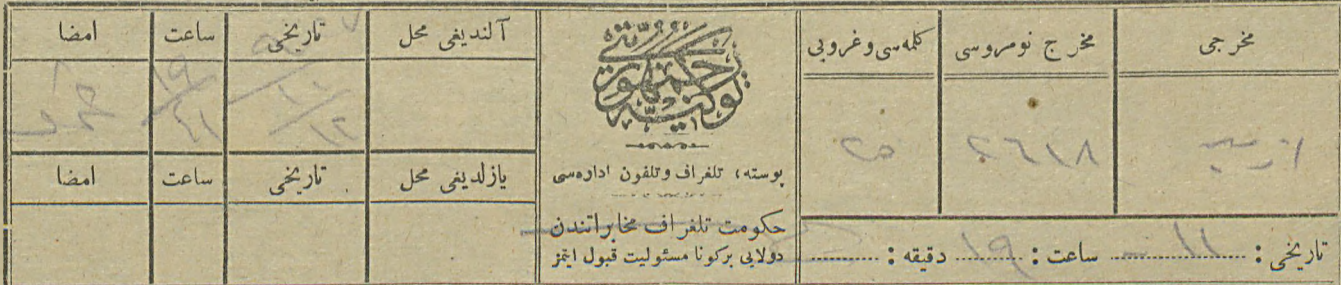 مخرجی
مخرج نومروسی
كلمه‌سی وغروبی
٢٦١٨
٢٥
تاریخی : ١١ ساعت : ١٩ دقیقه :
توركیه جمهوریتی
پوسته، تلغراف وتلفون اداره‌سی
حكومت تلغراف مخابراتندن
دولایی بركونا مسئولیت قبول ایتمز
آلندیغی محل
تاریخی
ساعت
امضا
١٩/٤١
یازلدیغی محل
تاریخی
ساعت
امضا